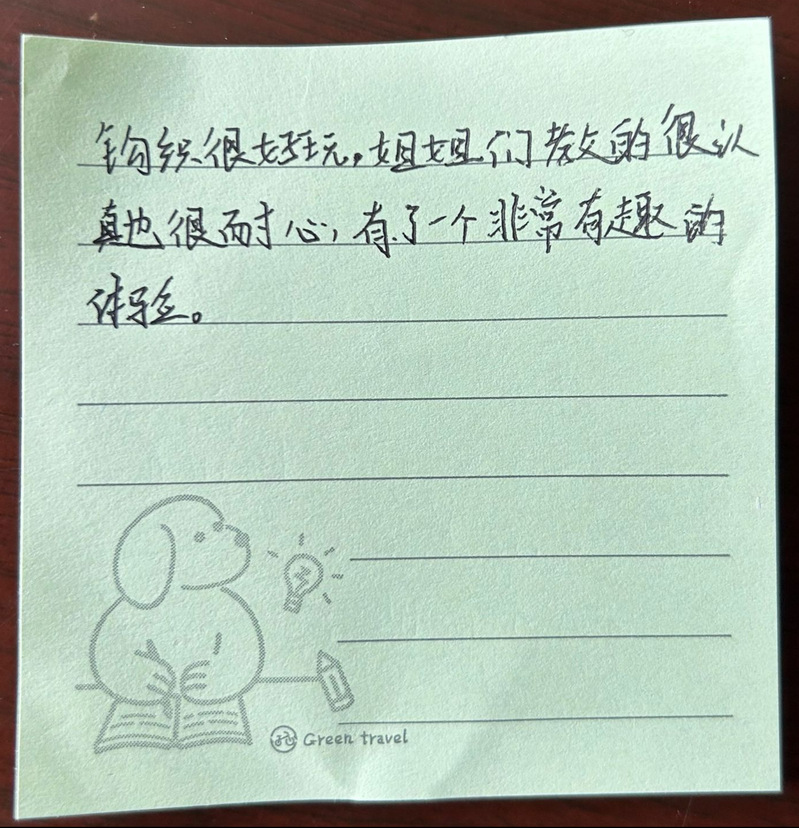 钩织很好玩，姐姐们教的很认
真也很耐心，有了一个非常有趣的
体验。
Green travel